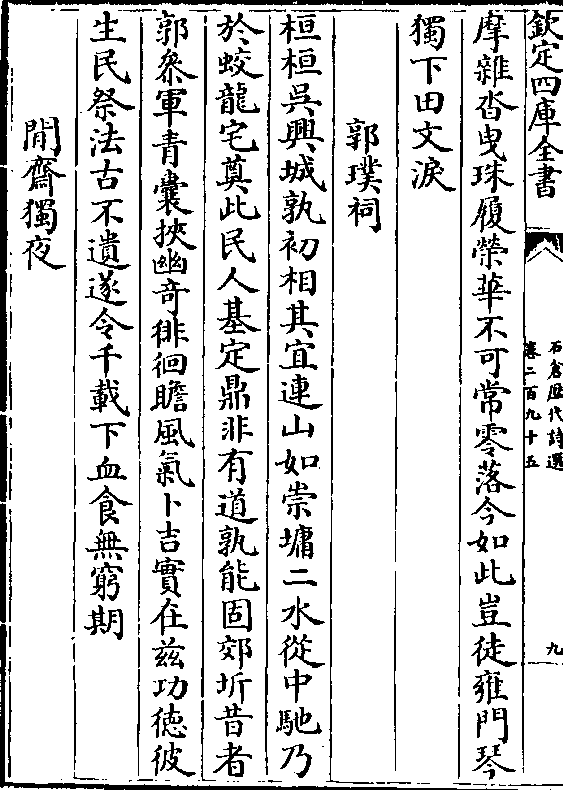 欽定四庫全書
石倉歴代詩選
卷二百九十五
九
摩雜沓曳珠履榮華不可常零落今如此豈徒雍門琴
獨下田文淚
郭璞祠
桓桓吳興城孰初相其宜連山如崇墉二水從中馳乃
於蛟龍宅奠此民人基定鼎非有道孰能固郊圻昔者
郭叅軍青囊挾幽奇徘徊瞻風氣卜吉實在兹功徳彼
生民祭法古不遺遂令千載下血食無窮期
閒齋獨夜